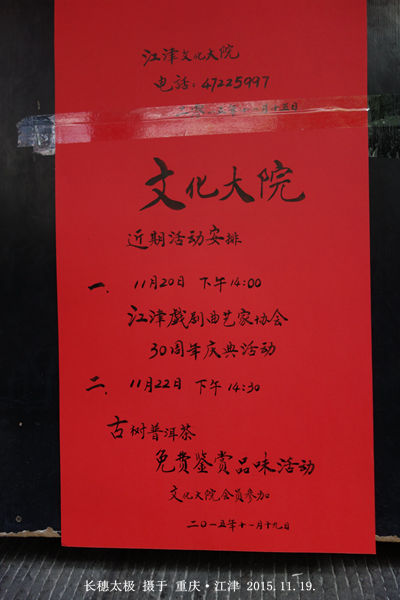 江津文化大院
电话:47225997
文化大院
近期活动安排
一、11月20日 下午14:00
江津戲剧曲艺家协会
30周年庆典活动
二、11月22日 下午14:30
古树普洱茶
免费鉴赏品味活动
文化大院会员参加
二〇一五年十一月十九日
长穗太极 摄于 重庆·江津 2015.11.19.